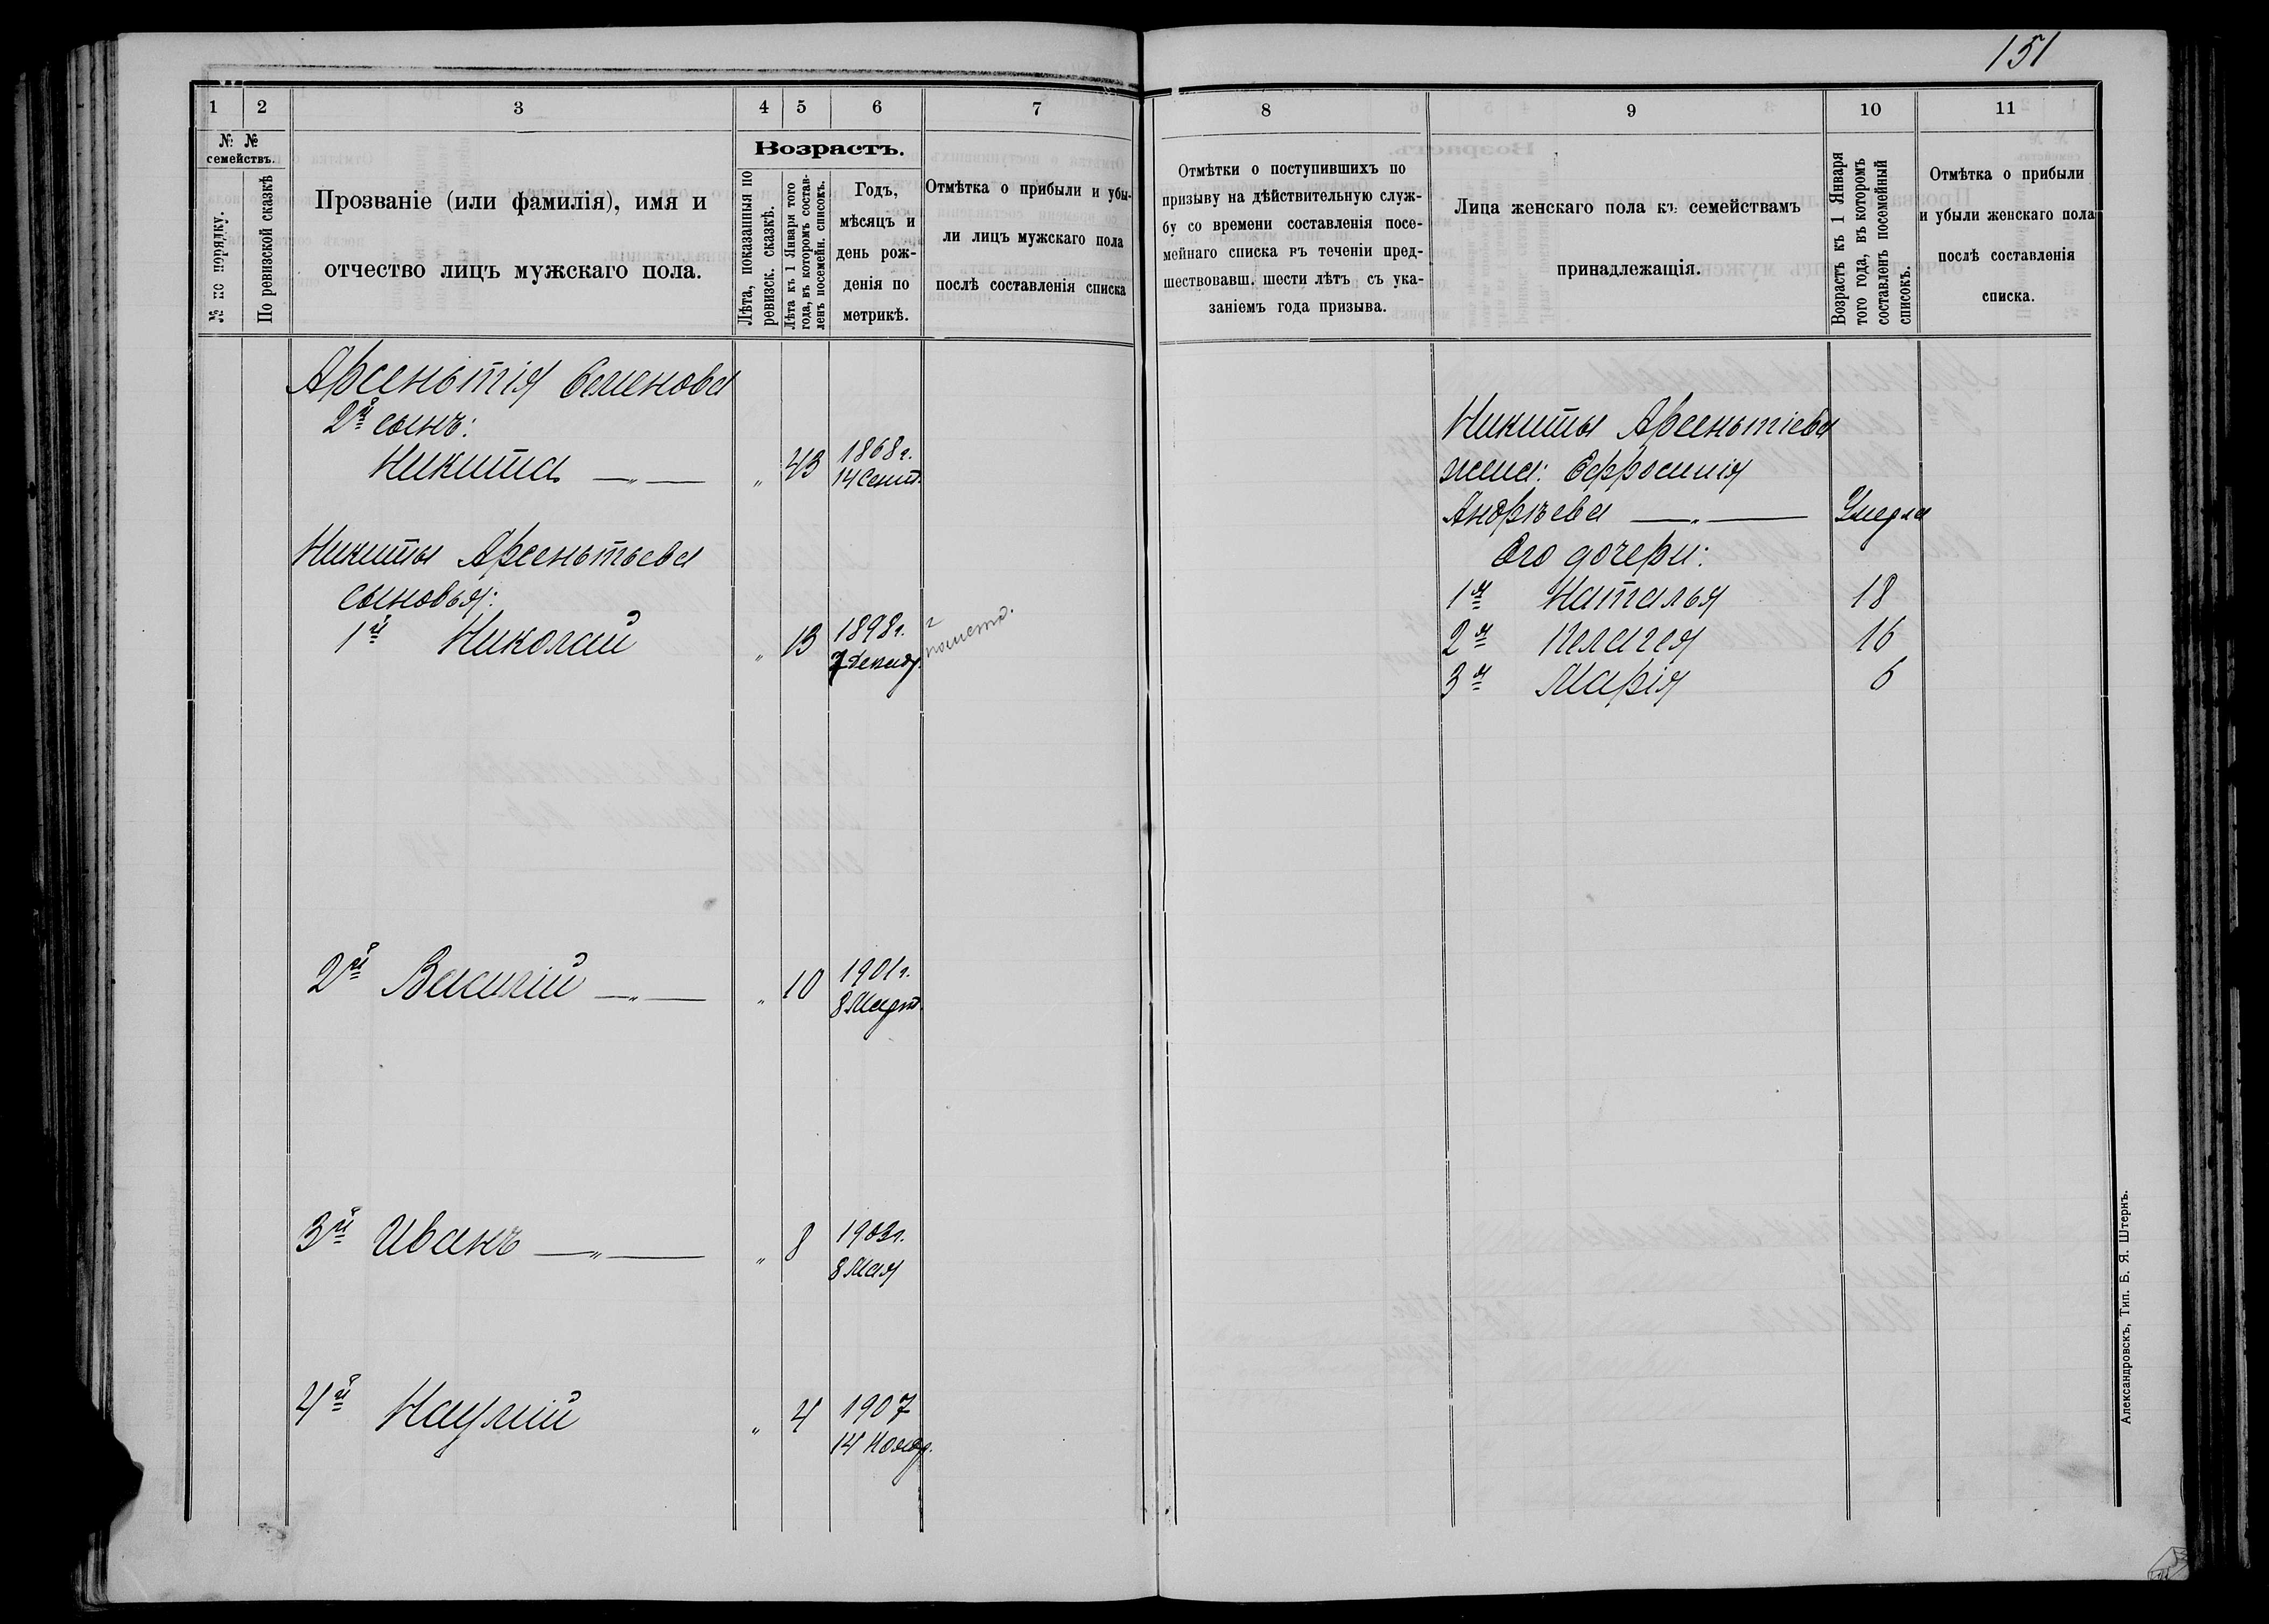 151
1 2 3 4 5 6 7
№ № семействъ.
№ по порядку.
По ревизской сказкѣ
Прозваніе (или фамилія), имя и
отчество лицъ мужскаго пола.
Возрастъ.
Лѣта, показанныя по
ревизск. сказкѣ.
Лѣта къ 1 Января того
года, въ которомъ состав-
ленъ посемейн. списокъ.
Годъ,
мѣсяцъ и
день рож-
денія по
метрикѣ.
Отмѣтка о прибыли и убы-
ли лицъ мужскаго пола
послѣ составленія списка
Арсеньтія Семенова
2й сынъ:
Никита —„— „ 43 1868г.
14 Сент.
Никиты Арсеньтьева
сыновья:
1й Николай „ 13 1898г.
7 Декаб.
2й Василій —„— „ 10 1901г.
8 Март.
3й Иванъ —„— „ 8 1903г.
8 Мая
4й Наумій „ 4 1907
14 Нояб.
8 9 10 11
Отмѣтки о поступившихъ по
призыву на дѣйствительную служ-
бу со времени составленія посе-
мейнаго списка въ теченіи пред-
шествовавш. шести лѣтъ съ ука-
заніемъ года призыва.
Лица женскаго пола къ семействамъ
принадлежащія.
Возрастъ къ 1 Января
того года, въ которомъ
составленъ посемейный
списокъ.
Отмѣтка о прибыли
и убыли женскаго пола
послѣ составленія
списка.
Никиты Арсеньтіева
жена: Ефросинія
Андрѣева —„— Умерла
Его дочери:
1я Наталья 18
2я Пелагея 16
3я Марія 6
Александровскъ, Тип. Б. Я. Штернъ.